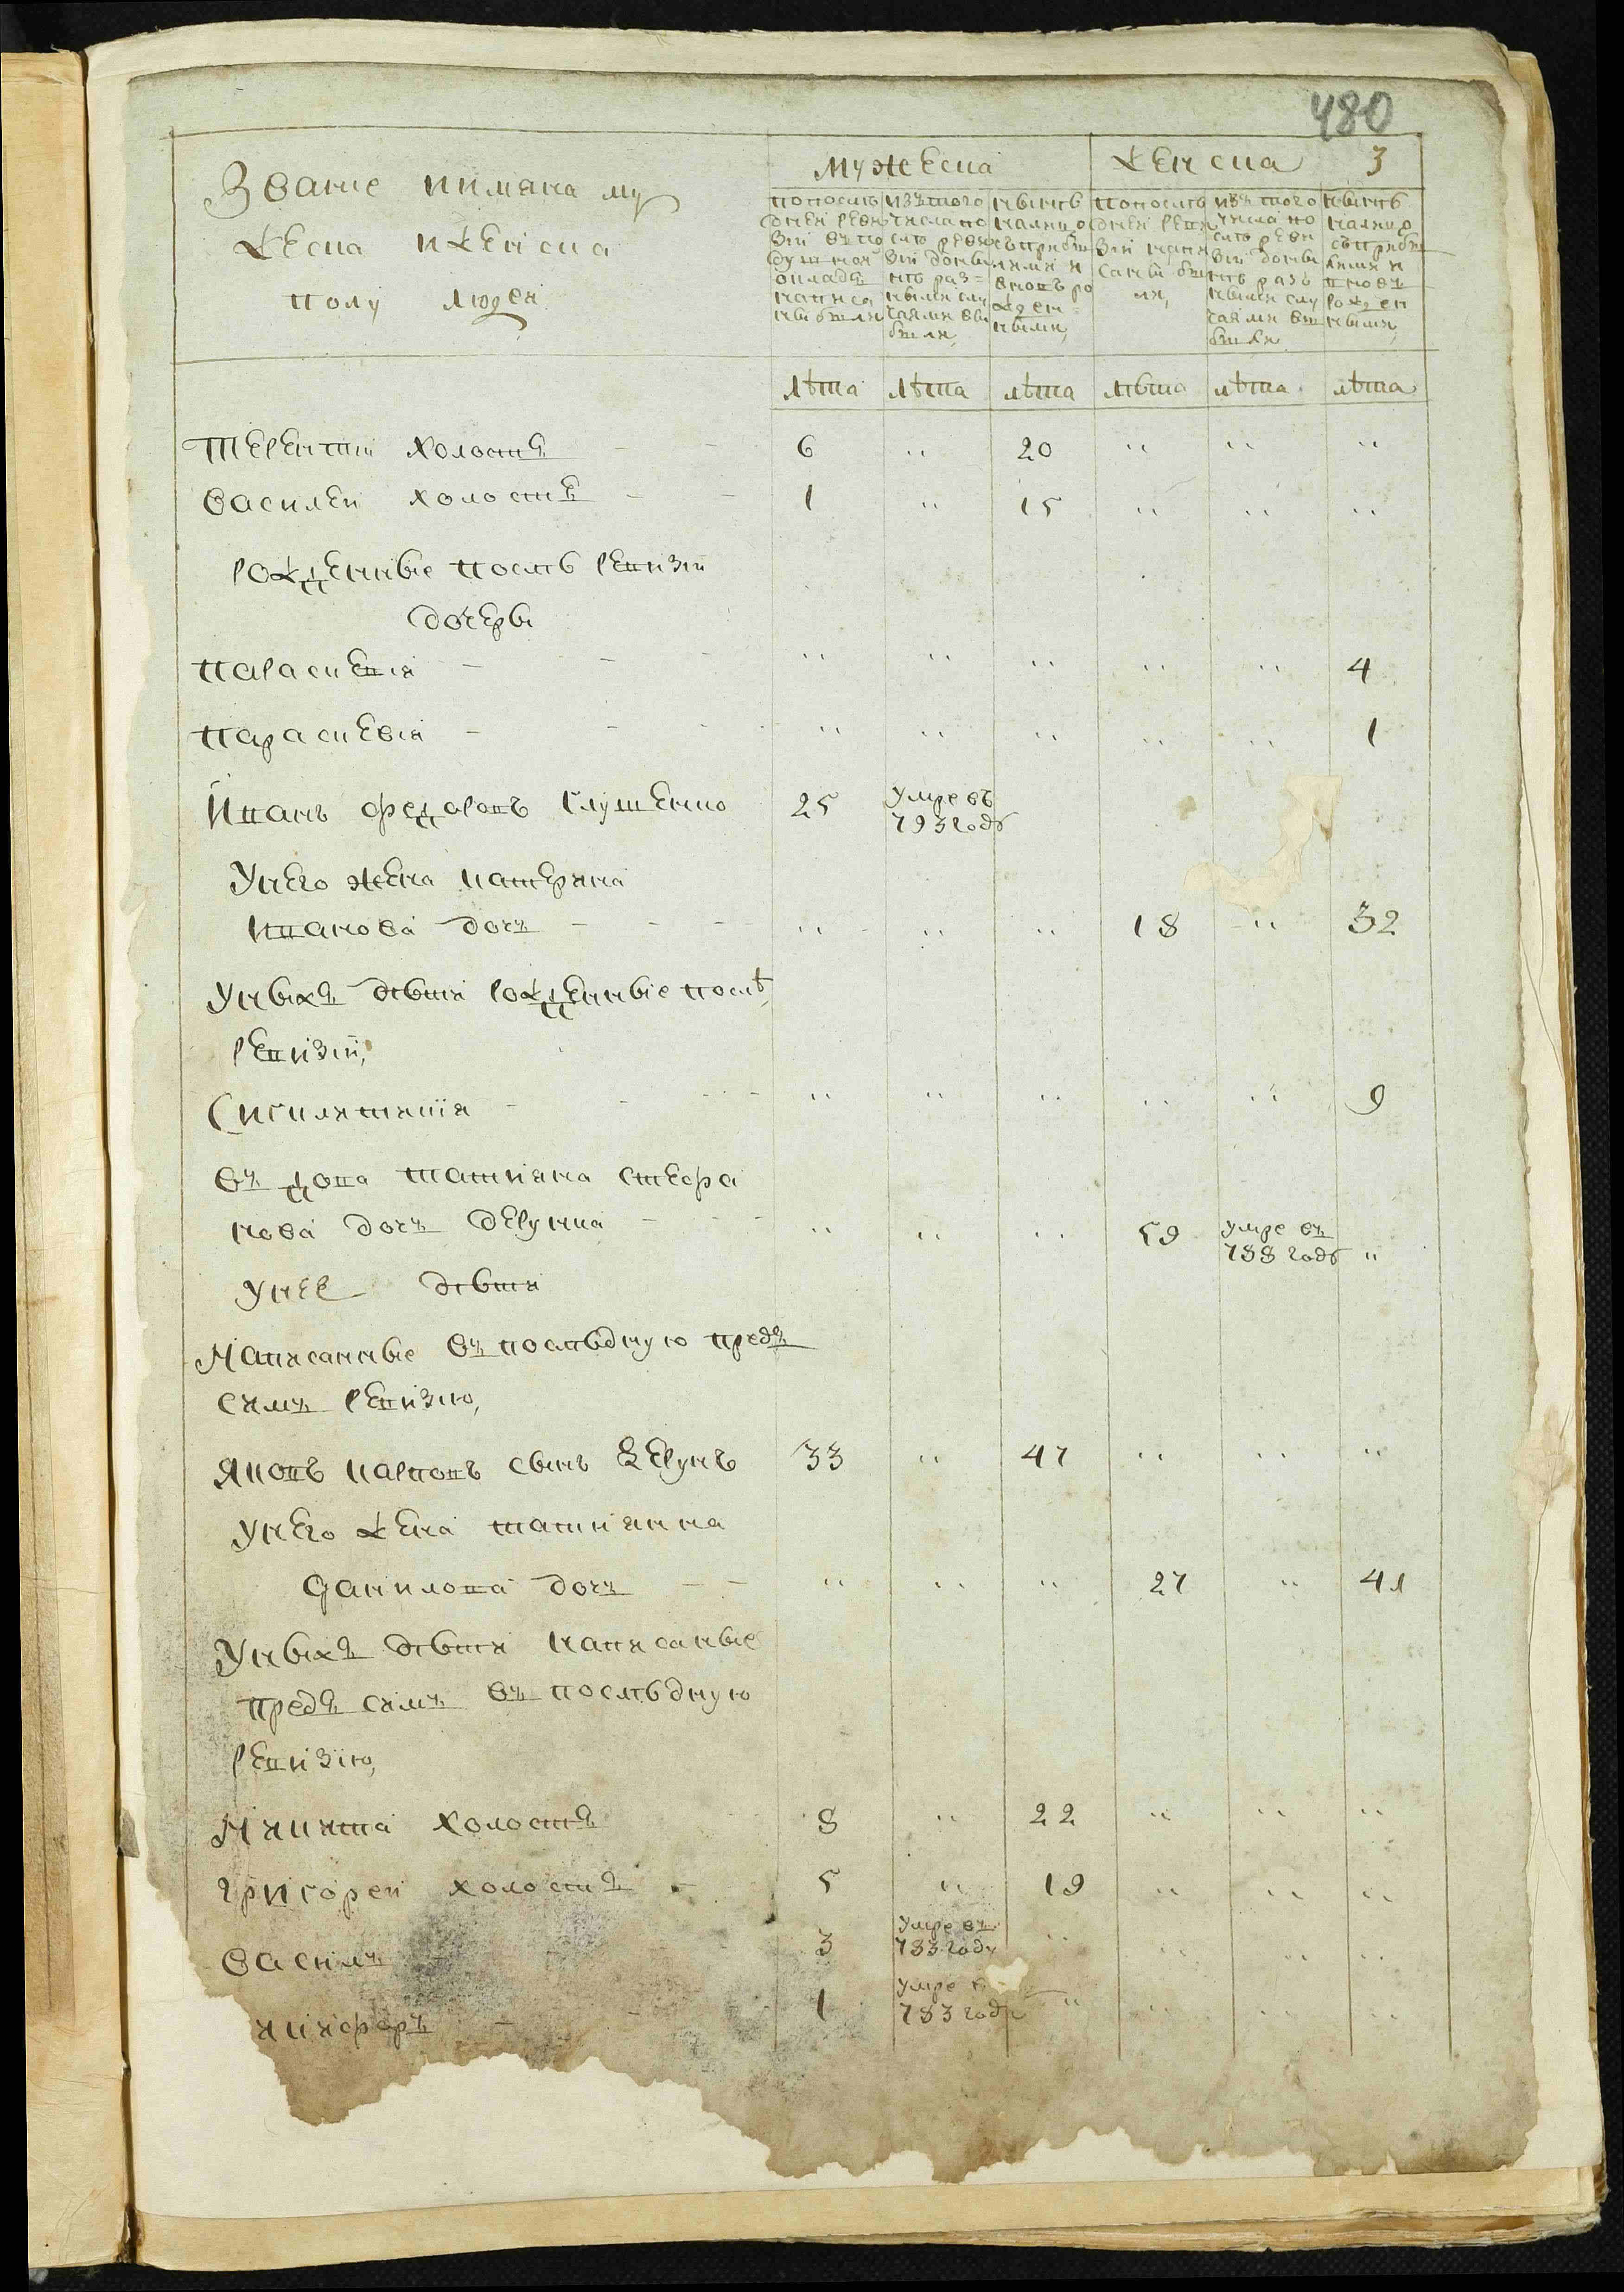 480
Званіе иимяна му
жеска иженска
полу людей
мужеска
женска 3
попослѣ
дней реви
зіи въ по
душной
окладъ
написа
ны были
изътого
числа по
слѣ реви
зіи домы
нѣ раз=
ными слу
чаями вы
были,
нынѣ
налицо
съприбы
лыми и
вновь ро
жден=
ными,
попослѣ
дней реви
зіи напи
саны бы
ли,
изъ того
числа по
слѣ реви
зіи домы
нѣ разъ
ными слу
чаями вы
были
нынѣ
налицо
съприбы
лыми и
вновъ
рожден
ными,
лѣта лѣта лѣта лѣта лѣта лѣта
терентий холостъ - 6 " 20 " " "
василей холостъ - - 1 " 15 " " "
рожденные послѣ ревизіи
дочеры
параскевія - - - " " " " " 4
параскевія - - - " " " " " 1
Иванъ федоровъ Глушенко 25 умре въ
793 годѣ
Унего жена катерина
иванова дочъ - - - " " " 18 " 32
Унихъ дѣти рожденные послѣ
ревизіи,
Сиклитикія - - - - " " " " " 9
въ дова татияна стефа
нова дочъ дерунка - - - " " " 59 умре въ
788 годѣ "
унее дѣти
Написанные въ последную предъ
симъ ревизію,
Яковъ карповъ сынъ дерунъ 33 " 47 " " "
унего жена татиянна
данилова дочъ - - " " " 27 " 41
Унихъ дѣти написаные
предъ симъ въ послѣдную
ревизію,
Микита холостъ 8 " 22 " " "
григорей холостъ - 5 " 19 " " "
василъ 3 умре въ
783 году " " " "
никифоръ - - 1 умре в
783 году " " " "